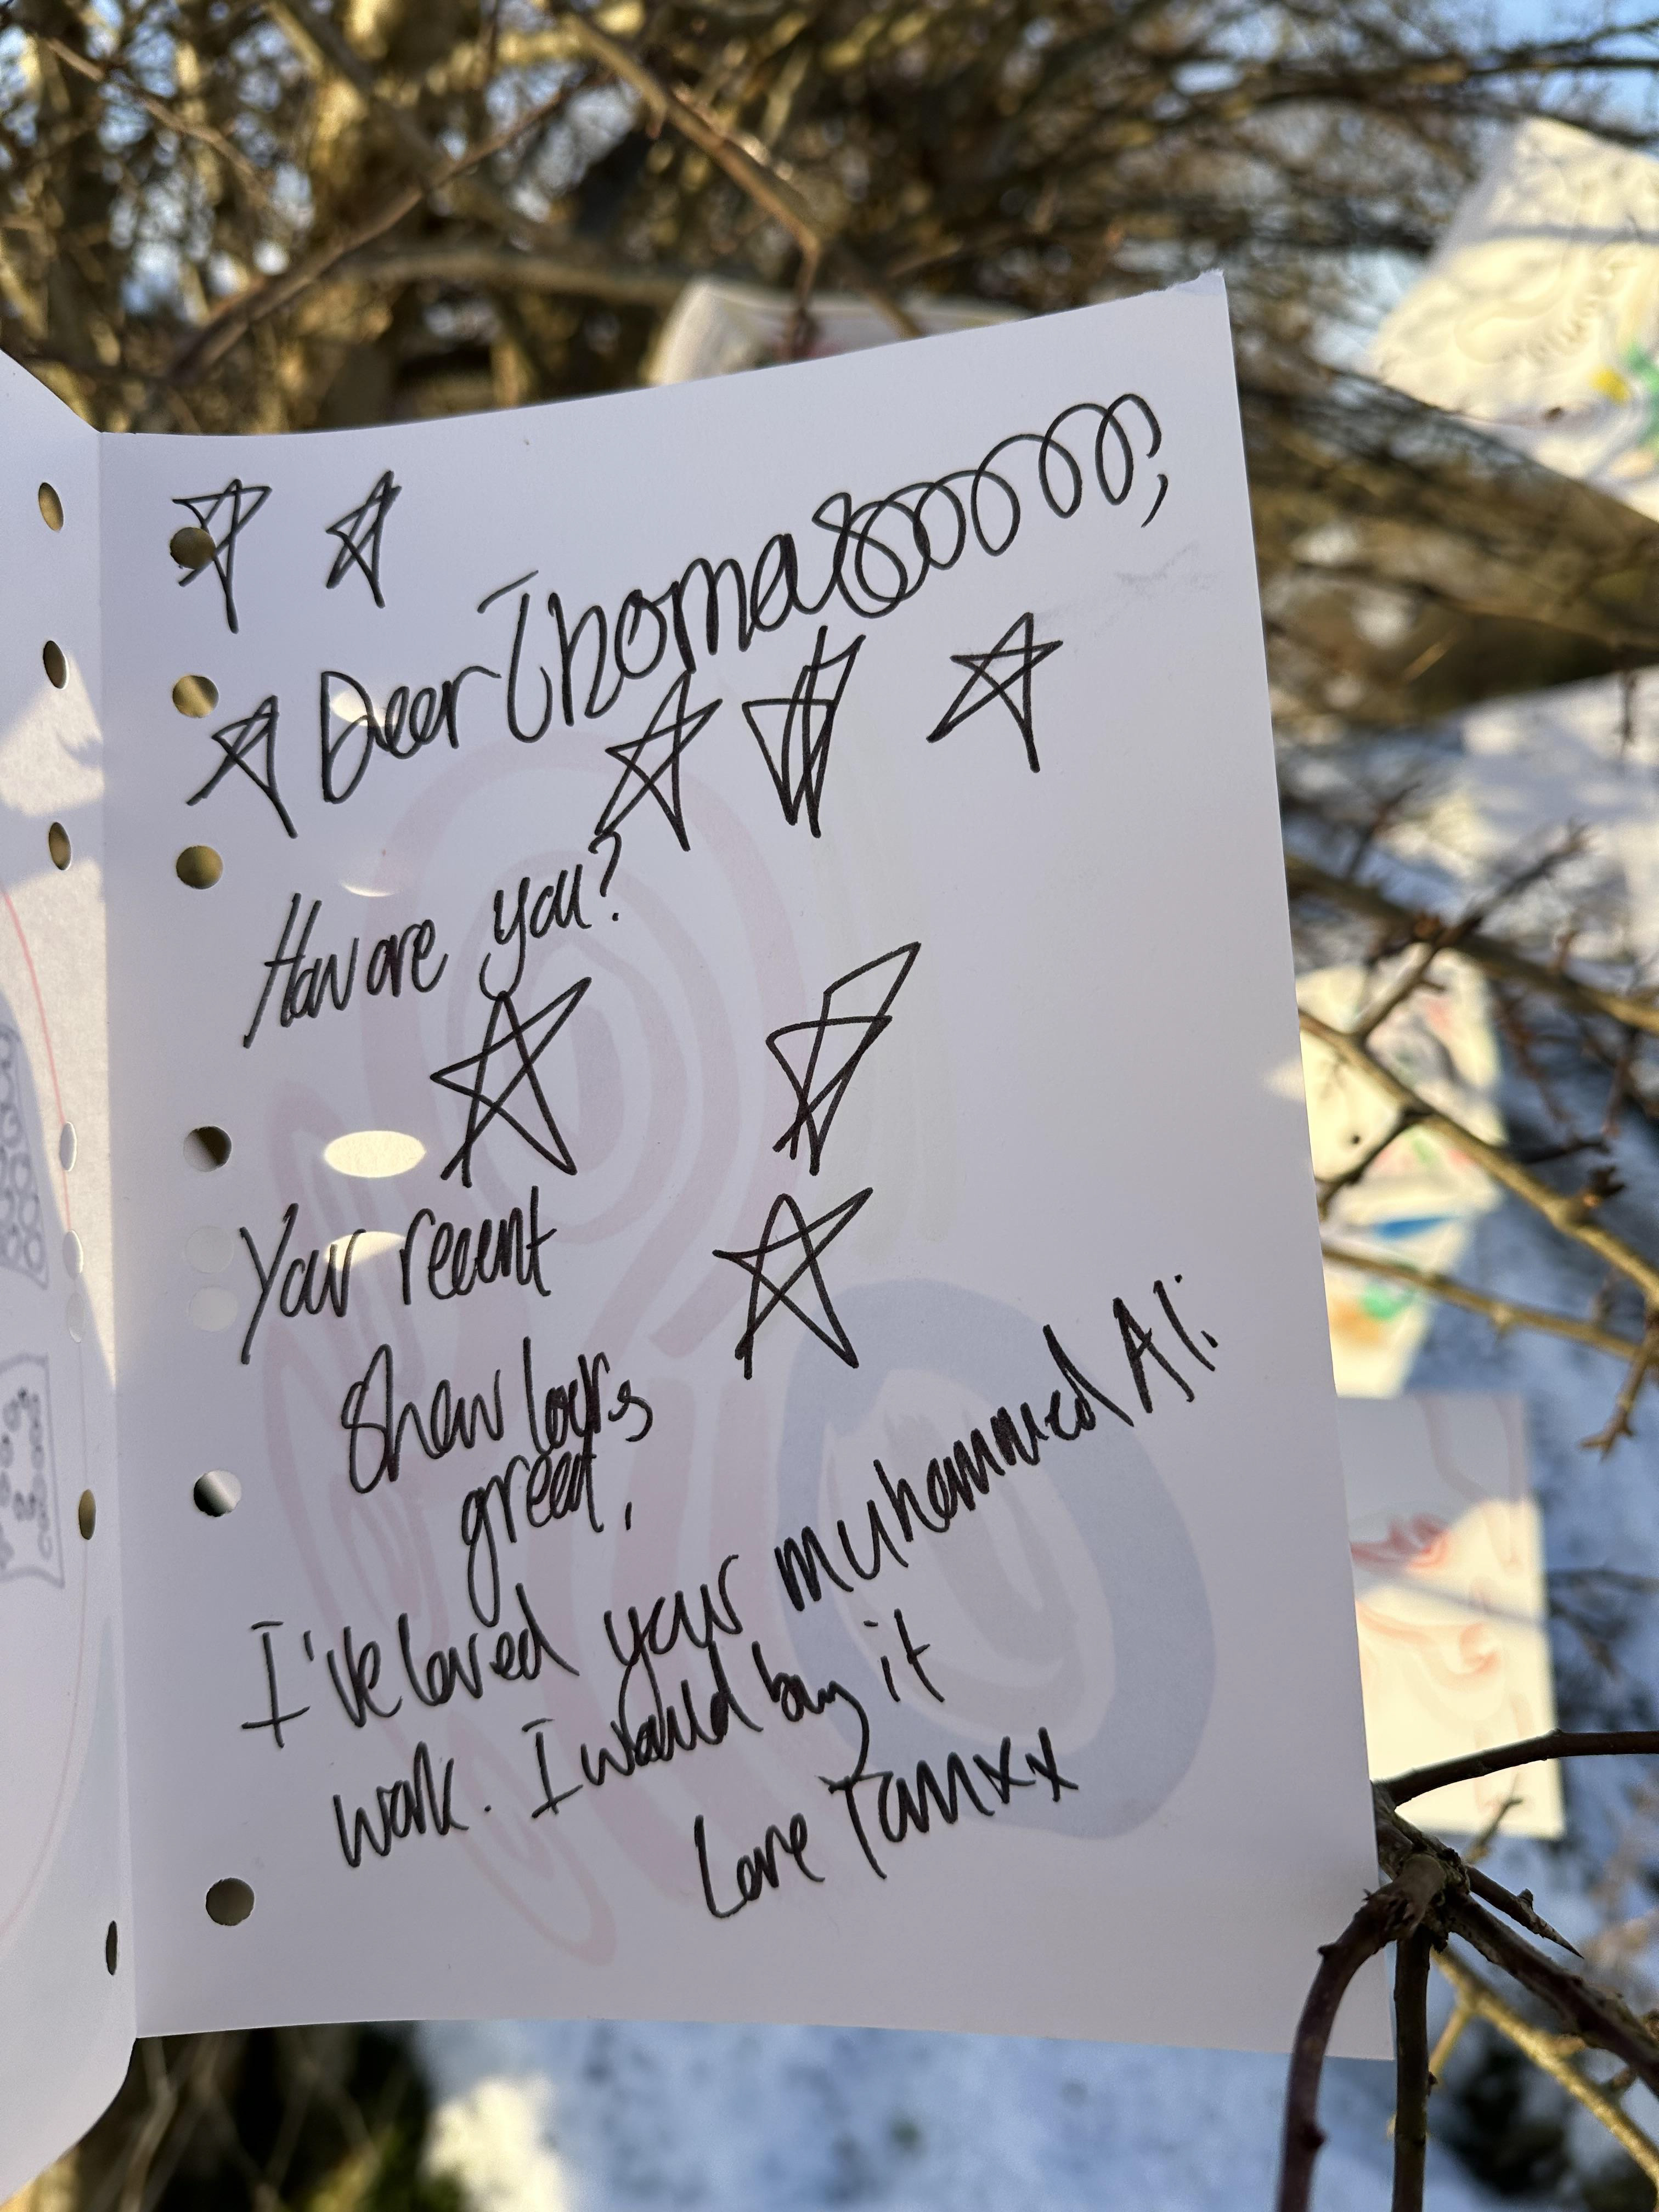 Dear Thomas,
How are you?
Your recent
show looks
great,
I've loved your muhammed Ali
work. I would buy it
Love Tam xx